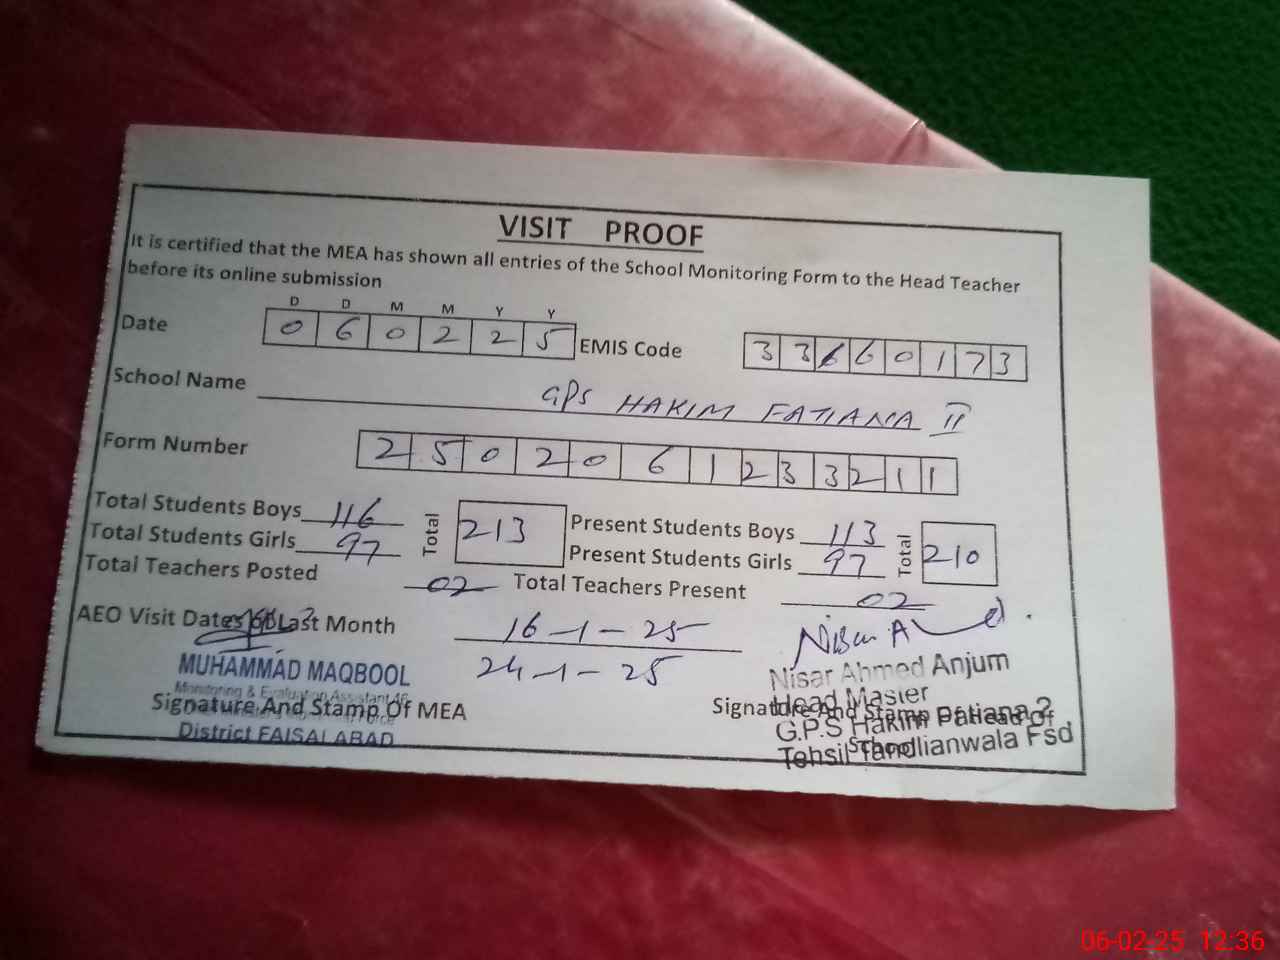 VISIT PROOF
It is certified that the MEA has shown all entries of the School Monitoring Form to the Head Teacher
before its online submission
D D M M Y Y
Date 0 6 0 2 2 5 EMIS Code 3 3 6 6 0 1 7 3
School Name GPS HAKIM FATIANA II
Form Number 2 5 0 2 0 6 1 2 3 3 2 1 1
Total Students Boys 116 Total 213 Present Students Boys 113 Total 210
Total Students Girls 97 Present Students Girls 97
Total Teachers Posted 02 Total Teachers Present 02
AEO Visit Dates of Last Month 16-1-25
24-1-25
MUHAMMAD MAQBOOL
Monitoring & Evaluation Assistant
Signature And Stamp Of MEA
District FAISALABAD
Nisar Ahmed Anjum
Head Master
Signature And Stamp Of Head Of
School
G.P.S Hakim Patiana 2
Tehsil Tandlianwala Fsd
06-02-25 12:36